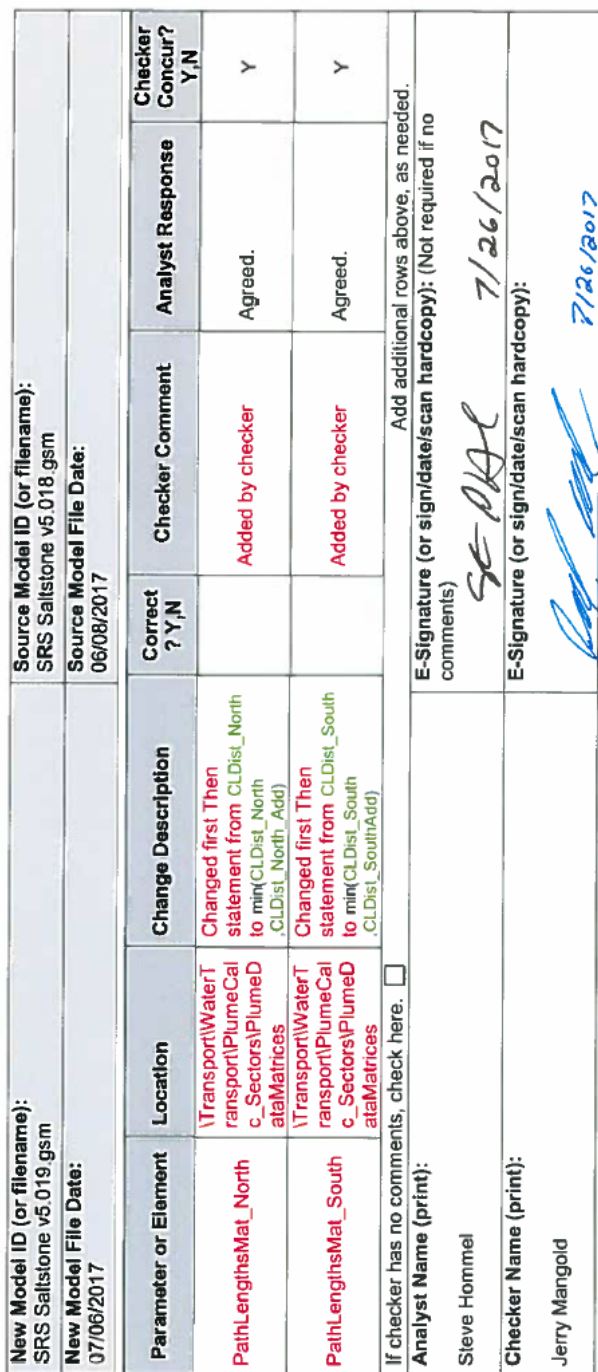 New Model ID (or filename):
SRS Saltstone v5.019.gsm
Source Model ID (or filename):
SRS Saltstone v5.018.gsm
New Model File Date:
07/06/2017
Source Model File Date:
06/08/2017
Parameter or Element
Location
Change Description
Correct
? Y,N
Checker Comment
Analyst Response
Checker
Concur?
Y,N
PathLengthsMat_North
\Transport\WaterT
ransport\PlumeCal
c_Sectors\PlumeD
ataMatrices
Changed first Then
statement from CLDist_North
to min(CLDist_North
,CLDist_North_Add)
Added by checker
Agreed.
Y
PathLengthsMat_South
\Transport\WaterT
ransport\PlumeCal
c_Sectors\PlumeD
ataMatrices
Changed first Then
statement from CLDist_South
to min(CLDist_South
,CLDist_SouthAdd)
Added by checker
Agreed.
Y
If checker has no comments, check here.
Add additional rows above, as needed.
Analyst Name (print):
Steve Hommel
E-Signature (or sign/date/scan hardcopy): (Not required if no
comments)
7/26/2017
Checker Name (print):
Jerry Mangold
E-Signature (or sign/date/scan hardcopy):
7/26/2017